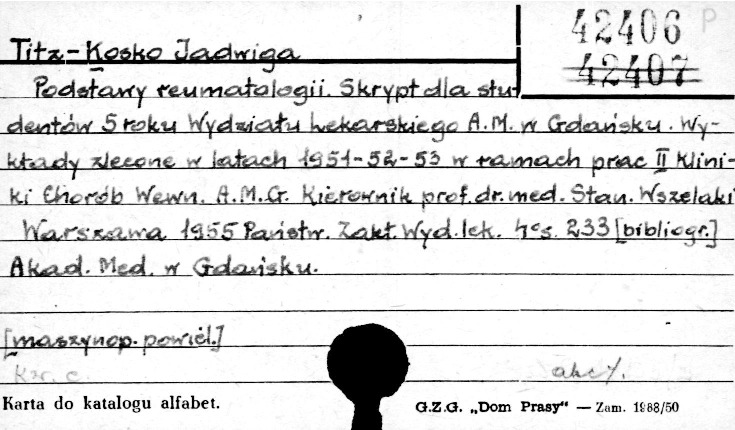 42406 P
42407
Titz-Kosko Jadwiga
Podstawy reumatologii. Skrypt dla stu-
dentów 5 roku Wydziału Lekarskiego A.M. w Gdańsku. Wy-
kłady zlecone w latach 1951-52-53 w ramach prac II Klini-
ki Chorób Wewn. A.M.G. Kierownik prof. dr. med. Stan. Wszelaki
Warszawa 1955 Państw. Zakł. Wyd. lek. 4° s. 233 [bibliogr.]
Akad. Med. w Gdańsku.
[maszynop. powiel.]
Kzr. c.
Karta do katalogu alfabet.
G.Z.G. „Dom Prasy“ — Zam. 1988/50